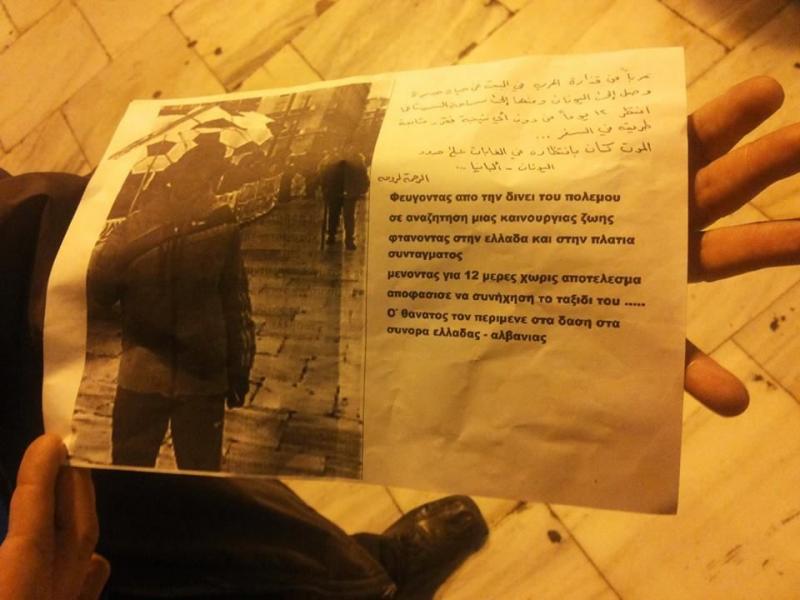 هرباً من قذارة الحرب في البحث عن حياة جديدة
وصل إلى اليونان ومنها إلى ساحة السينتاغما
انتظر ١٢ يوماً من دون أي نتيجة فقرر متابعة
طريقه في السفر ...
الموت كان بانتظاره في الغابات على حدود
اليونان - ألبانيا ...
الرحمة لروحه
Φευγοντας απο την δινει του πολεμου
σε αναζητηση μιας καινουργιας ζωης
φτανοντας στην ελλαδα και στην πλατια
συνταγματος
μενοντας για 12 μερες χωρις αποτελεσμα
αποφασισε να συνήχηση το ταξιδι του .....
Ο' θανατος τον περιμενε στα δαση στα
συνορα ελλαδας - αλβανιας